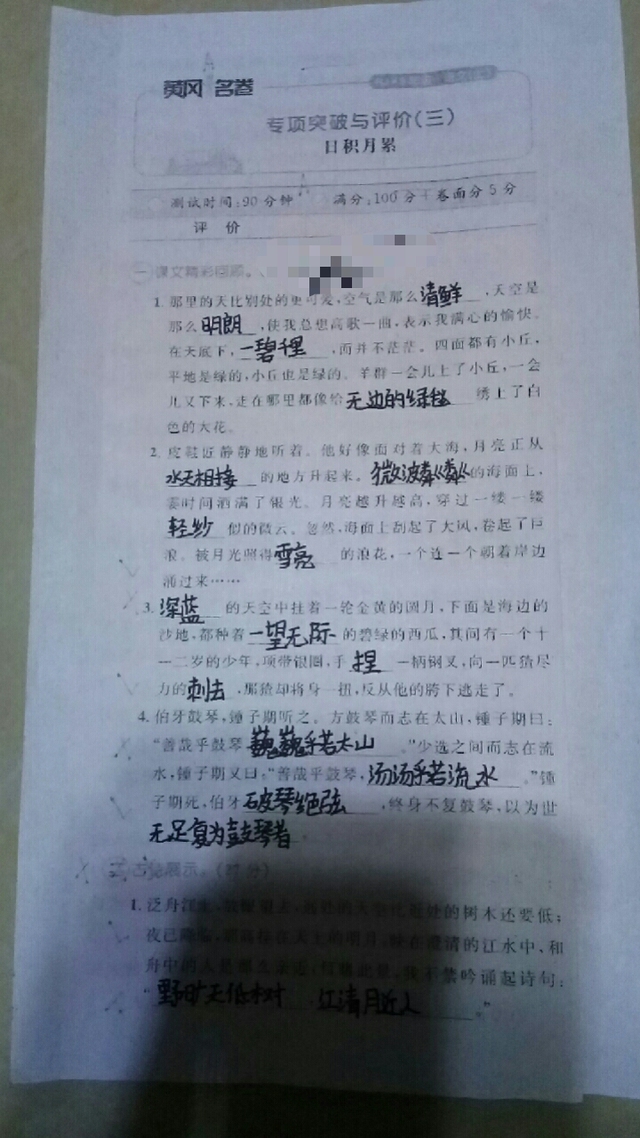 黄冈 名卷
专项突破与评价(三)
日积月累
测试时间:90分钟 满分:100分+卷面分5分
评 价
一 课文精彩回顾。
1. 那里的天比别处的更可爱,空气是那么清鲜,天空是
那么明朗,使我总想高歌一曲,表示我满心的愉快。
在天底下,一碧千里,而并不茫茫。四面都有小丘,
平地是绿的,小丘也是绿的。羊群一会儿上了小丘,一会
儿又下来,走在哪里都像给无边的绿毯绣上了白
色的大花。
2. 皮鞋匠静静地听着。他好像面对着大海,月亮正从
水天相接的地方升起来。微波粼粼的海面上,
霎时间洒满了银光。月亮越升越高,穿过一缕一缕
轻纱似的微云。忽然,海面上刮起了大风,卷起了巨
浪。被月光照得雪亮的浪花,一个连一个朝着岸边
涌过来……
3. 深蓝的天空中挂着一轮金黄的圆月,下面是海边的
沙地,都种着一望无际的碧绿的西瓜,其间有一个十
一二岁的少年,项带银圈,手捏一柄钢叉,向一匹猹尽
力的刺去,那猹却将身一扭,反从他的胯下逃走了。
4. 伯牙鼓琴,锺子期听之。方鼓琴而志在太山,锺子期曰:
“善哉乎鼓琴,巍巍乎若太山。”少选之间而志在流
水,锺子期又曰:“善哉乎鼓琴,汤汤乎若流水。”锺
子期死,伯牙破琴绝弦,终身不复鼓琴,以为世
无足复为鼓琴者。
1. 泛舟江上,的树木还要低;
夜已降临,高挂在天上的明月,映在澄清的江水中,和
舟中的人是那,我不禁吟诵起诗句:
“野旷天低树 江清月近人”